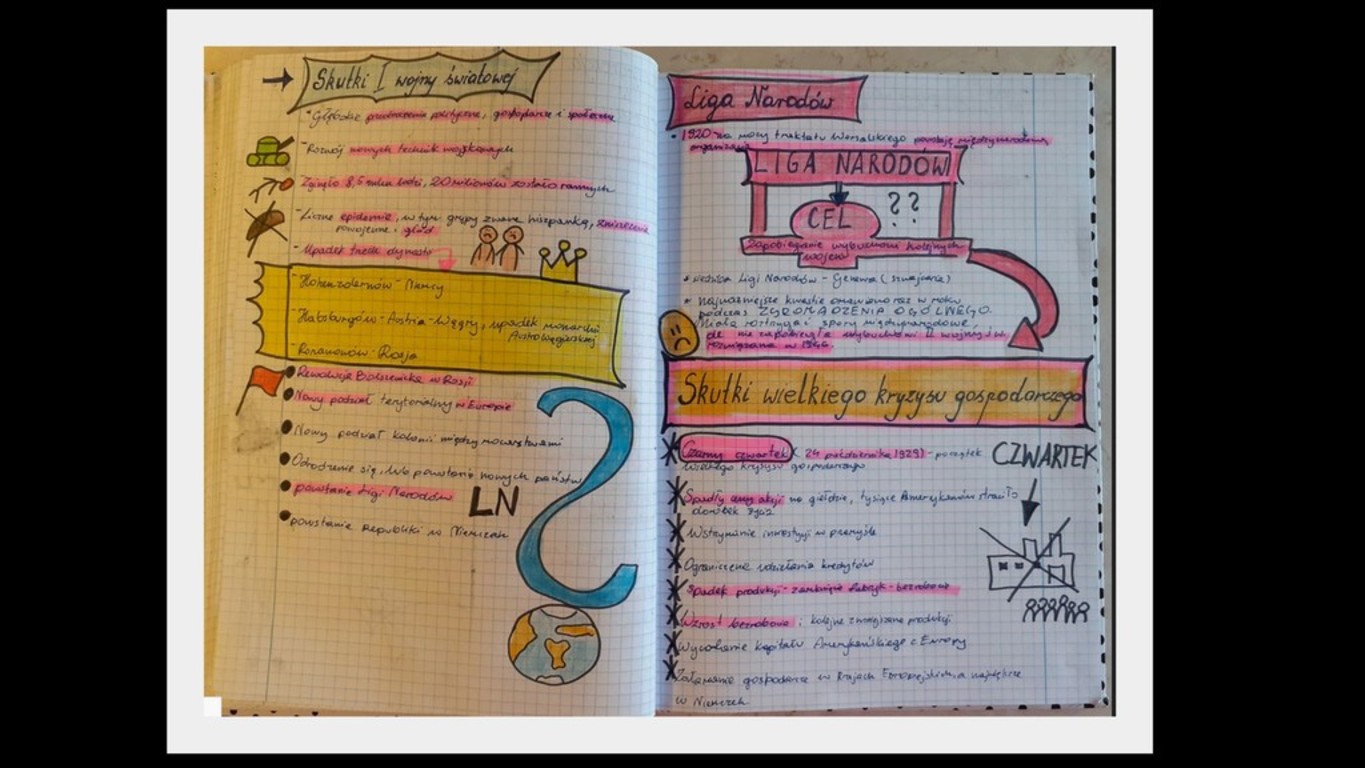 Skutki I wojny światowej
- Głębokie przeobrażenia polityczne, gospodarcze i społeczne
- Rozwój nowych technik wojskowych
- Zginęło 8,5 mln ludzi, 20 milionów zostało rannych
- Liczne epidemie, w tym grypy zwane hiszpanką, zniszczenia
powojenne i głód
- Upadek trzech dynastii
- Hohenzollernów - Niemcy
- Habsburgów - Austria - Węgry, upadek monarchii
Austrowęgierskiej
- Romanowów - Rosja
Rewolucja Bolszewicka w Rosji
Nowy podział terytorialny w Europie
Nowy podział kolonii między mocarstwami
Odrodzenie się, lub powstanie nowych państw
powstanie Ligi Narodów
LN
powstanie republiki w Niemczech
Liga Narodów
1920 na mocy traktatu Wersalskiego powstaje międzynarodowa
organizacja
LIGA NARODÓW
CEL
? ?
Zapobieganie wybuchowi kolejnych
wojen
siedziba Ligi Narodów - Genewa (szwajcaria)
najważniejsze kwestie omawiano raz w roku
podczas ZGROMADZENIA OGÓLNEGO.
Miała rozstrzygać spory międzynarodowe,
ale nie zapobiegła wybuchowi II wojny św.
rozwiązana w 1946.
Skutki wielkiego kryzysu gospodarczego
Czarny czwartek (24 października 1929) - początek
wielkiego kryzysu gospodarczego
CZWARTEK
Spadły ceny akcji na giełdzie, tysiące Amerykanów straciło
dorobek życia
Wstrzymanie inwestycji w przemyśle
Ograniczenie udzielania kredytów
Spadek produkcji - zamknięcie fabryk - bezrobocie
Wzrost bezrobocia i kolejne zmniejszanie produkcji
Wycofanie kapitału Amerykańskiego z Europy
Załamanie gospodarcze w krajach Europejskich, a największe
w Niemczech